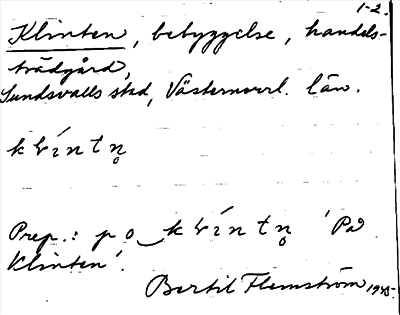 1-2.
Klinten, bebyggelse, handels-
trädgård,
Sundsvalls stad, Västernorrl. län.
kḷíntn̥
Prep.: po‿kḷíntn̥ 'På
Klinten'.
Bertil Flemström 1945.